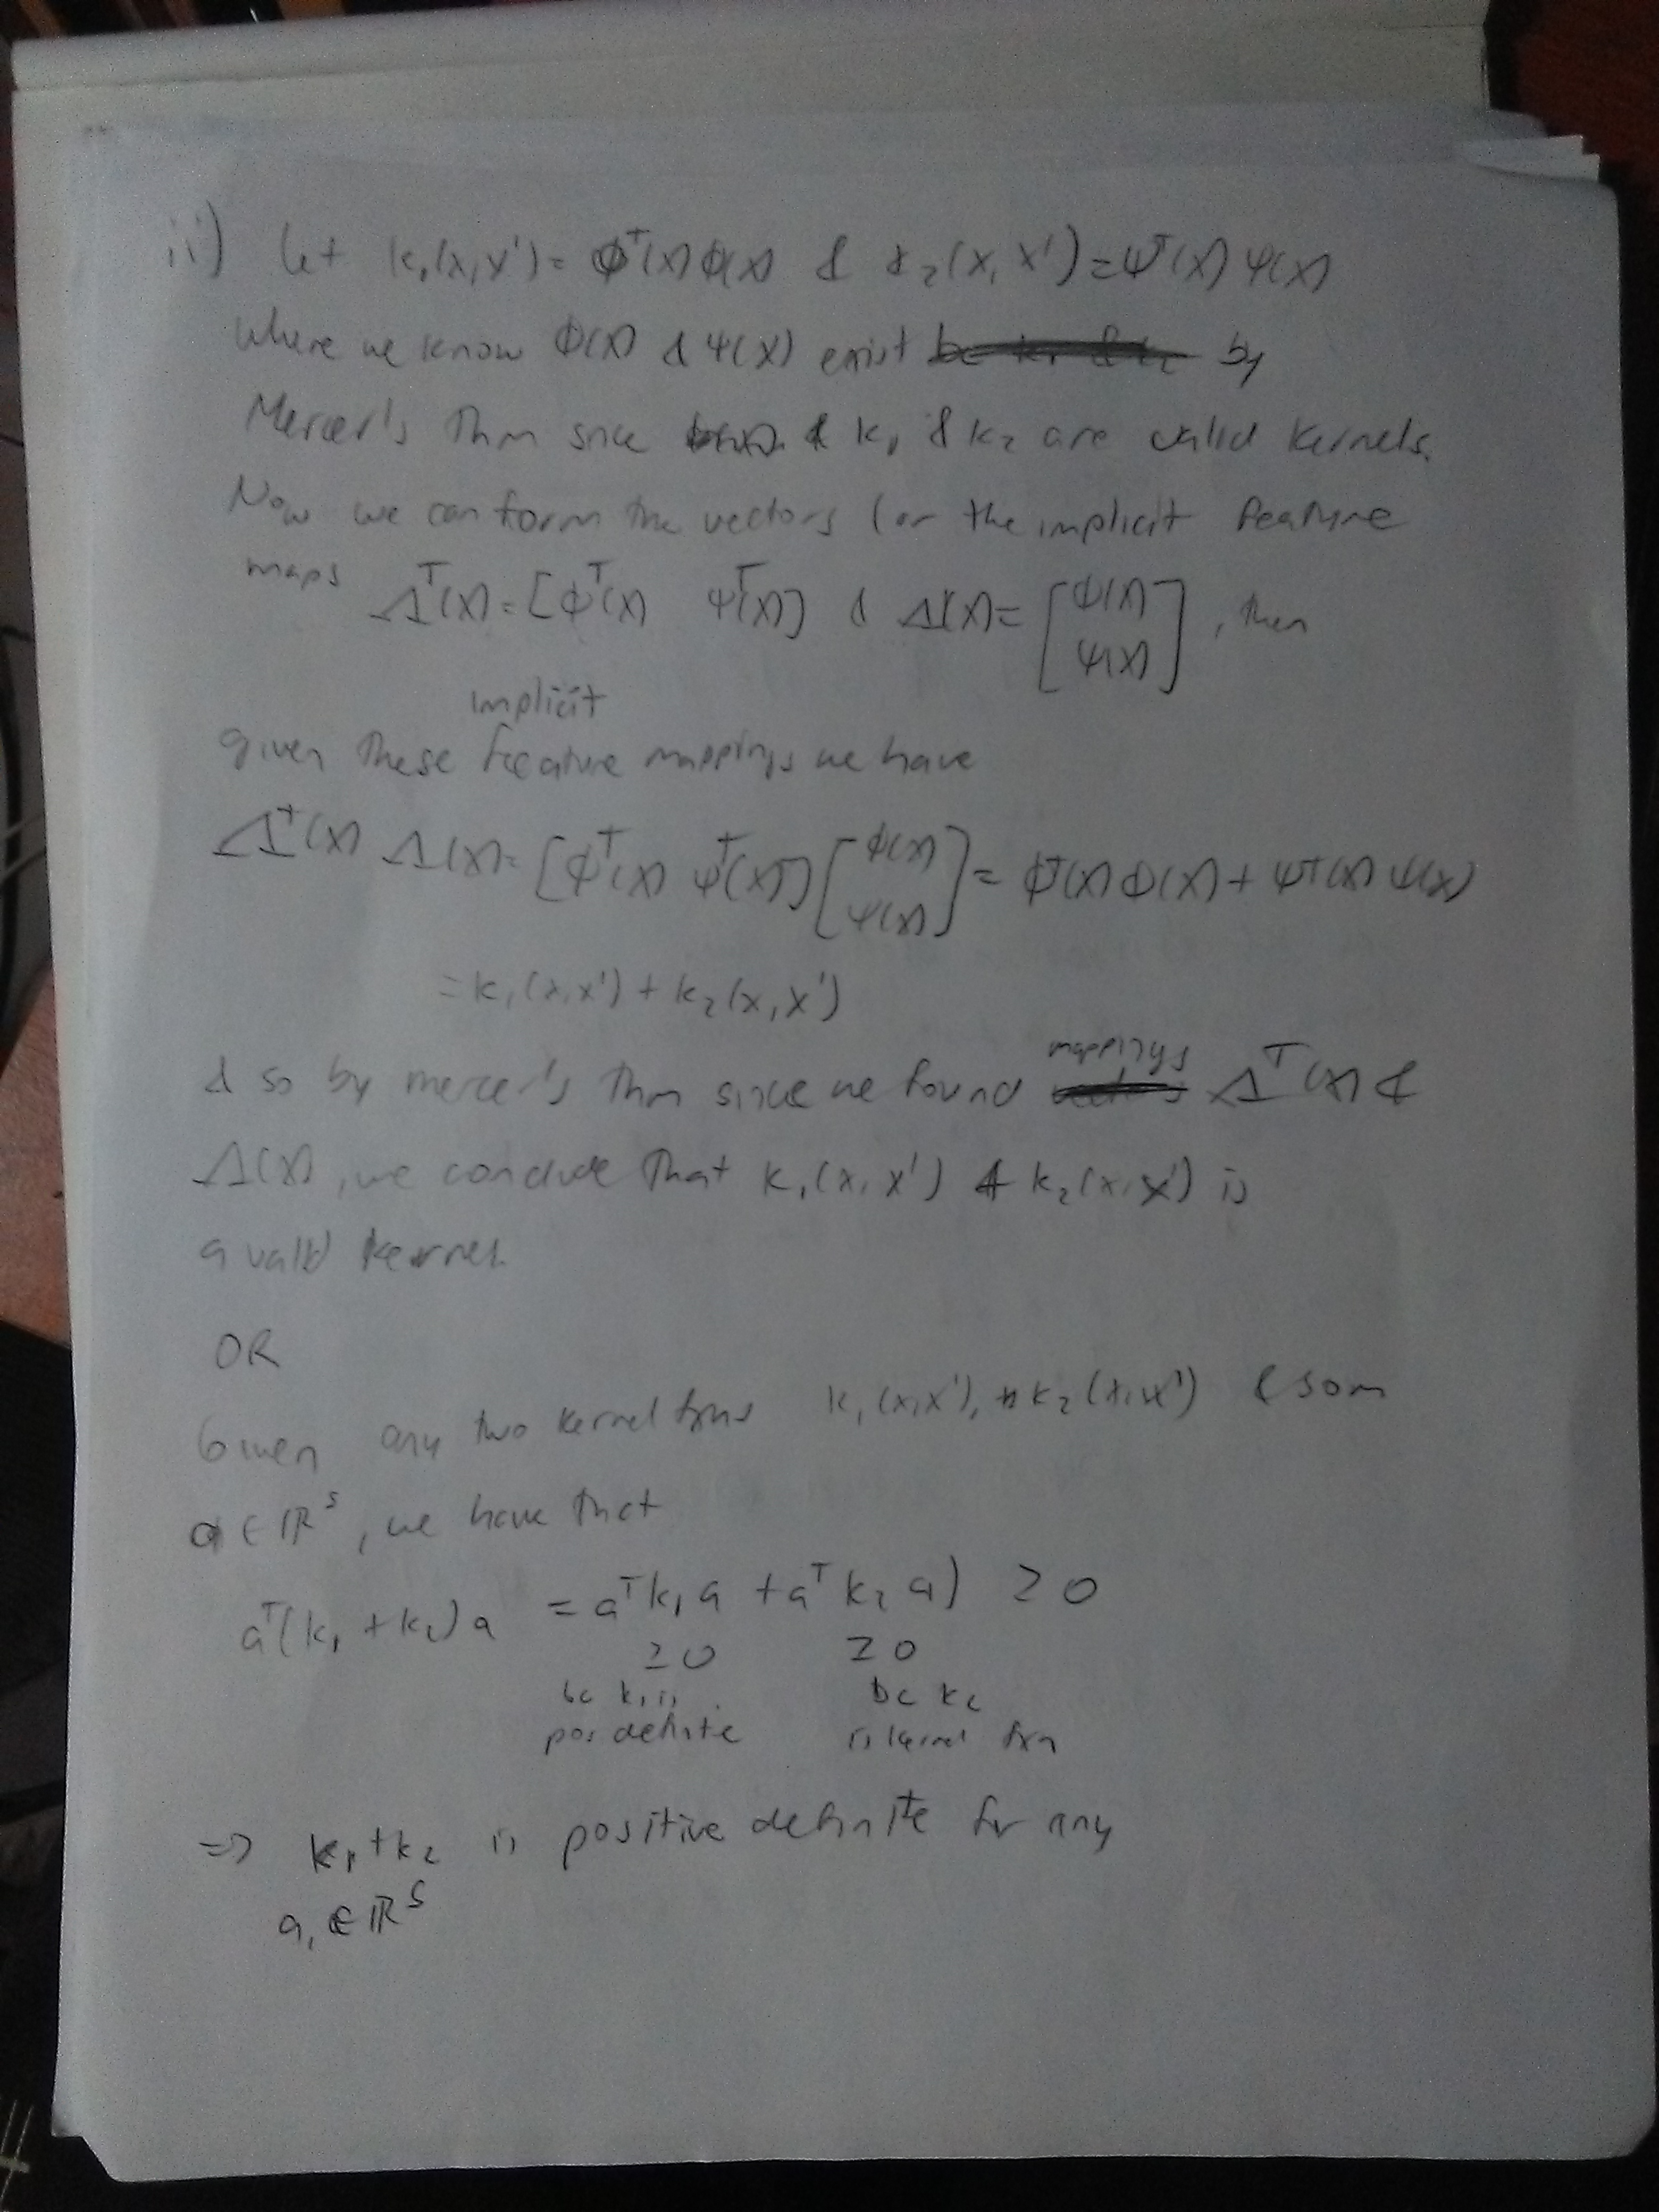 ii) Let k₁(x,x') = ϕᵀ(x) ϕ(x) & k₂(x, x') = ψᵀ(x) ψ(x)
where we know ϕ(x) & ψ(x) exist by
Mercer's Thm since & k₁ & k₂ are valid kernels.
Now we can form the vectors (or the implicit feature
maps Δᵀ(x) = [ϕᵀ(x) ψᵀ(x)] & Δ(x) = [ϕ(x) ψ(x)], then
implicit
given these feature mappings we have
Δᵀ(x) Δ(x) = [ϕᵀ(x) ψᵀ(x)] [ϕ(x) ψ(x)] = ϕᵀ(x) ϕ(x) + ψᵀ(x) ψ(x)
= k₁(x,x') + k₂(x,x')
mappings
& so by mercer's Thm since we found Δᵀ(x) &
Δ(x), we conclude that k₁(x,x') + k₂(x,x') is
a valid kernel.
OR
Given any two kernel fxns k₁(x,x'), k₂(x,x') & som
a ∈ ℝˢ, we have that
aᵀ(k₁ + k₂)a = aᵀk₁a + aᵀk₂a) ≥ 0
≥ 0 ≥ 0
bc k₁ is bc k₂
pos definite is kernel fxn
=> k₁+k₂ is positive definite for any
a, ∈ ℝˢ